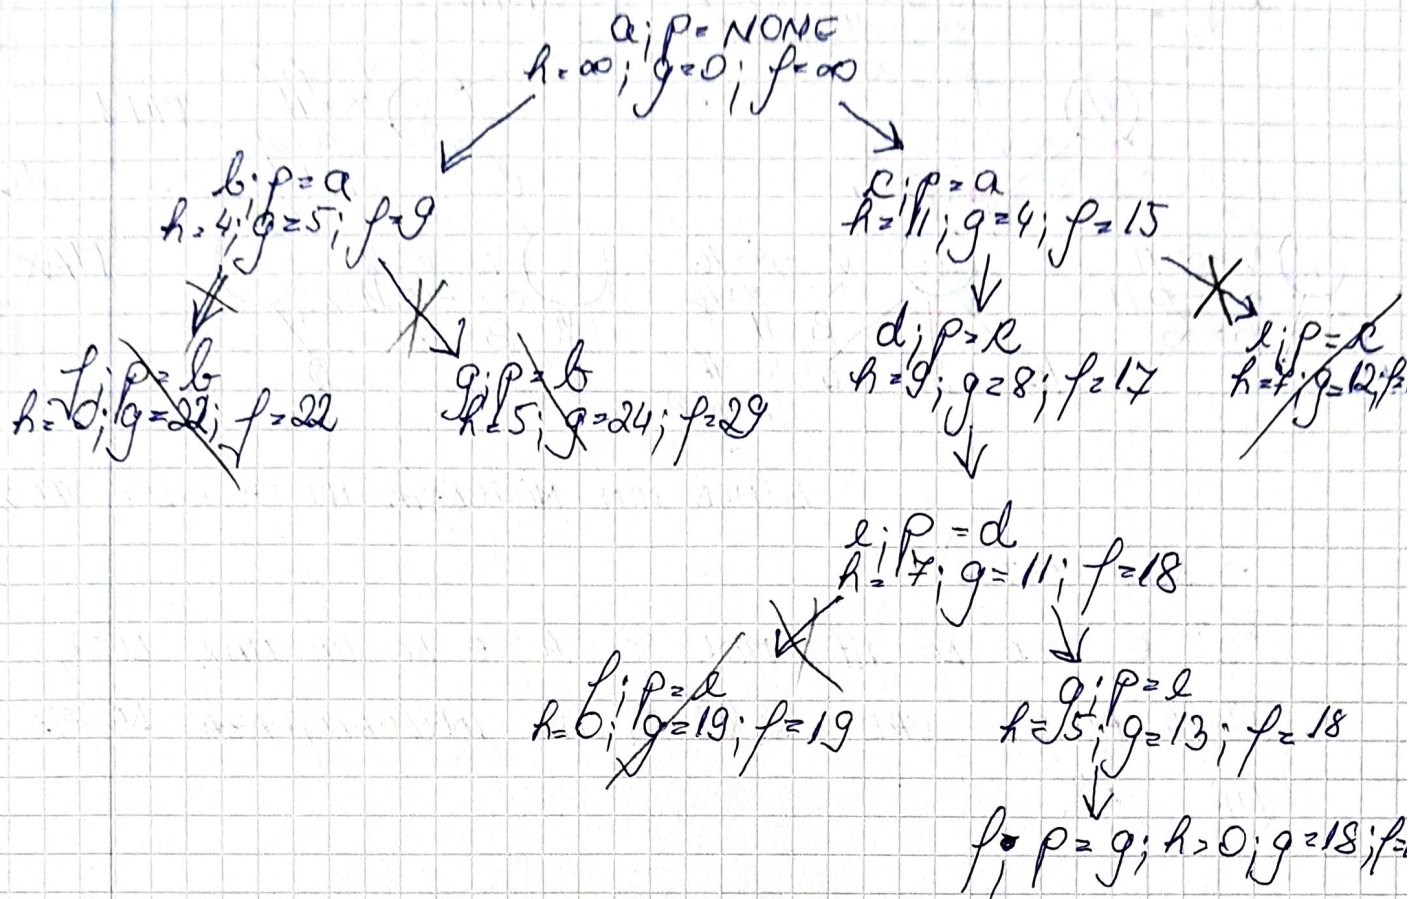 a; p = NONE
h = ∞; g = 0; f = ∞
b; p = a
h = 4; g = 5; f = 9
c; p = a
h = 11; g = 4; f = 15
f; p = b
h = 0; g = 22; f = 22
g; p = b
h = 5; g = 24; f = 29
d; p = c
h = 9; g = 8; f = 17
e; p = c
h = 7; g = 12; f =
e; p = d
h = 7; g = 11; f = 18
f; p = e
h = 0; g = 19; f = 19
g; p = e
h = 5; g = 13; f = 18
f; p = g; h = 0; g = 18; f =